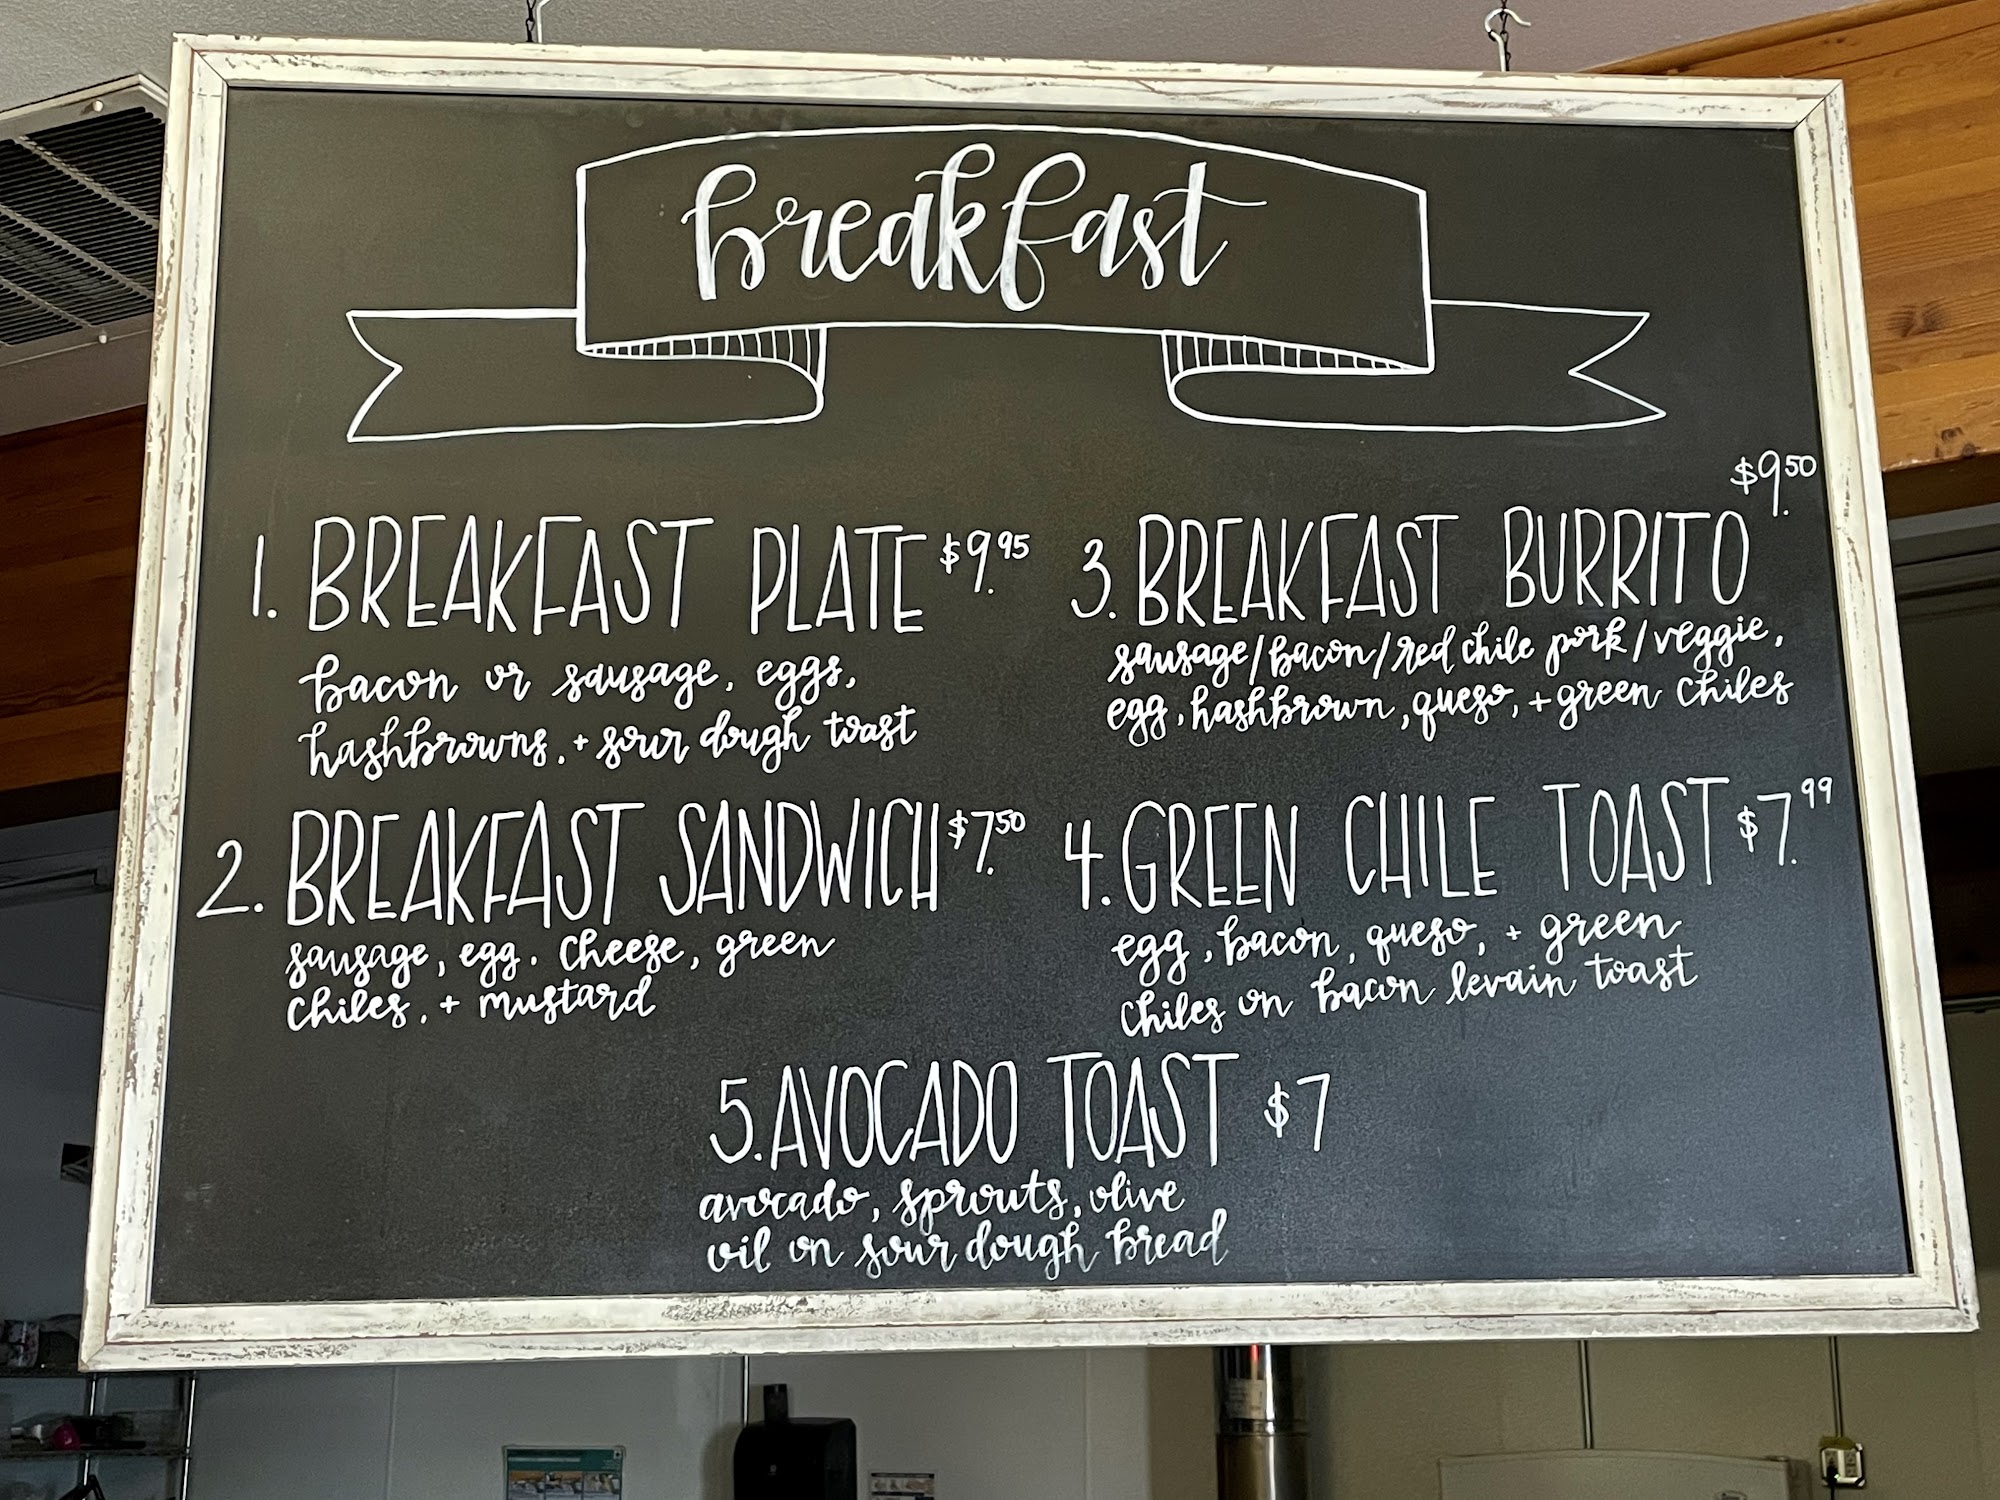 breakfast
1. BREAKFAST PLATE $9.95
bacon or sausage, eggs,
hashbrowns, + sour dough toast
2. BREAKFAST SANDWICH $7.50
sausage, egg, cheese, green
chiles, + mustard
$9.50
3. BREAKFAST BURRITO
sausage/bacon/red chile pork/veggie,
egg, hashbrown, queso, + green chiles
4. GREEN CHILE TOAST $7.99
egg, bacon, queso, + green
chiles on bacon levain toast
5. AVOCADO TOAST $7
avocado, sprouts, olive
oil on sour dough bread